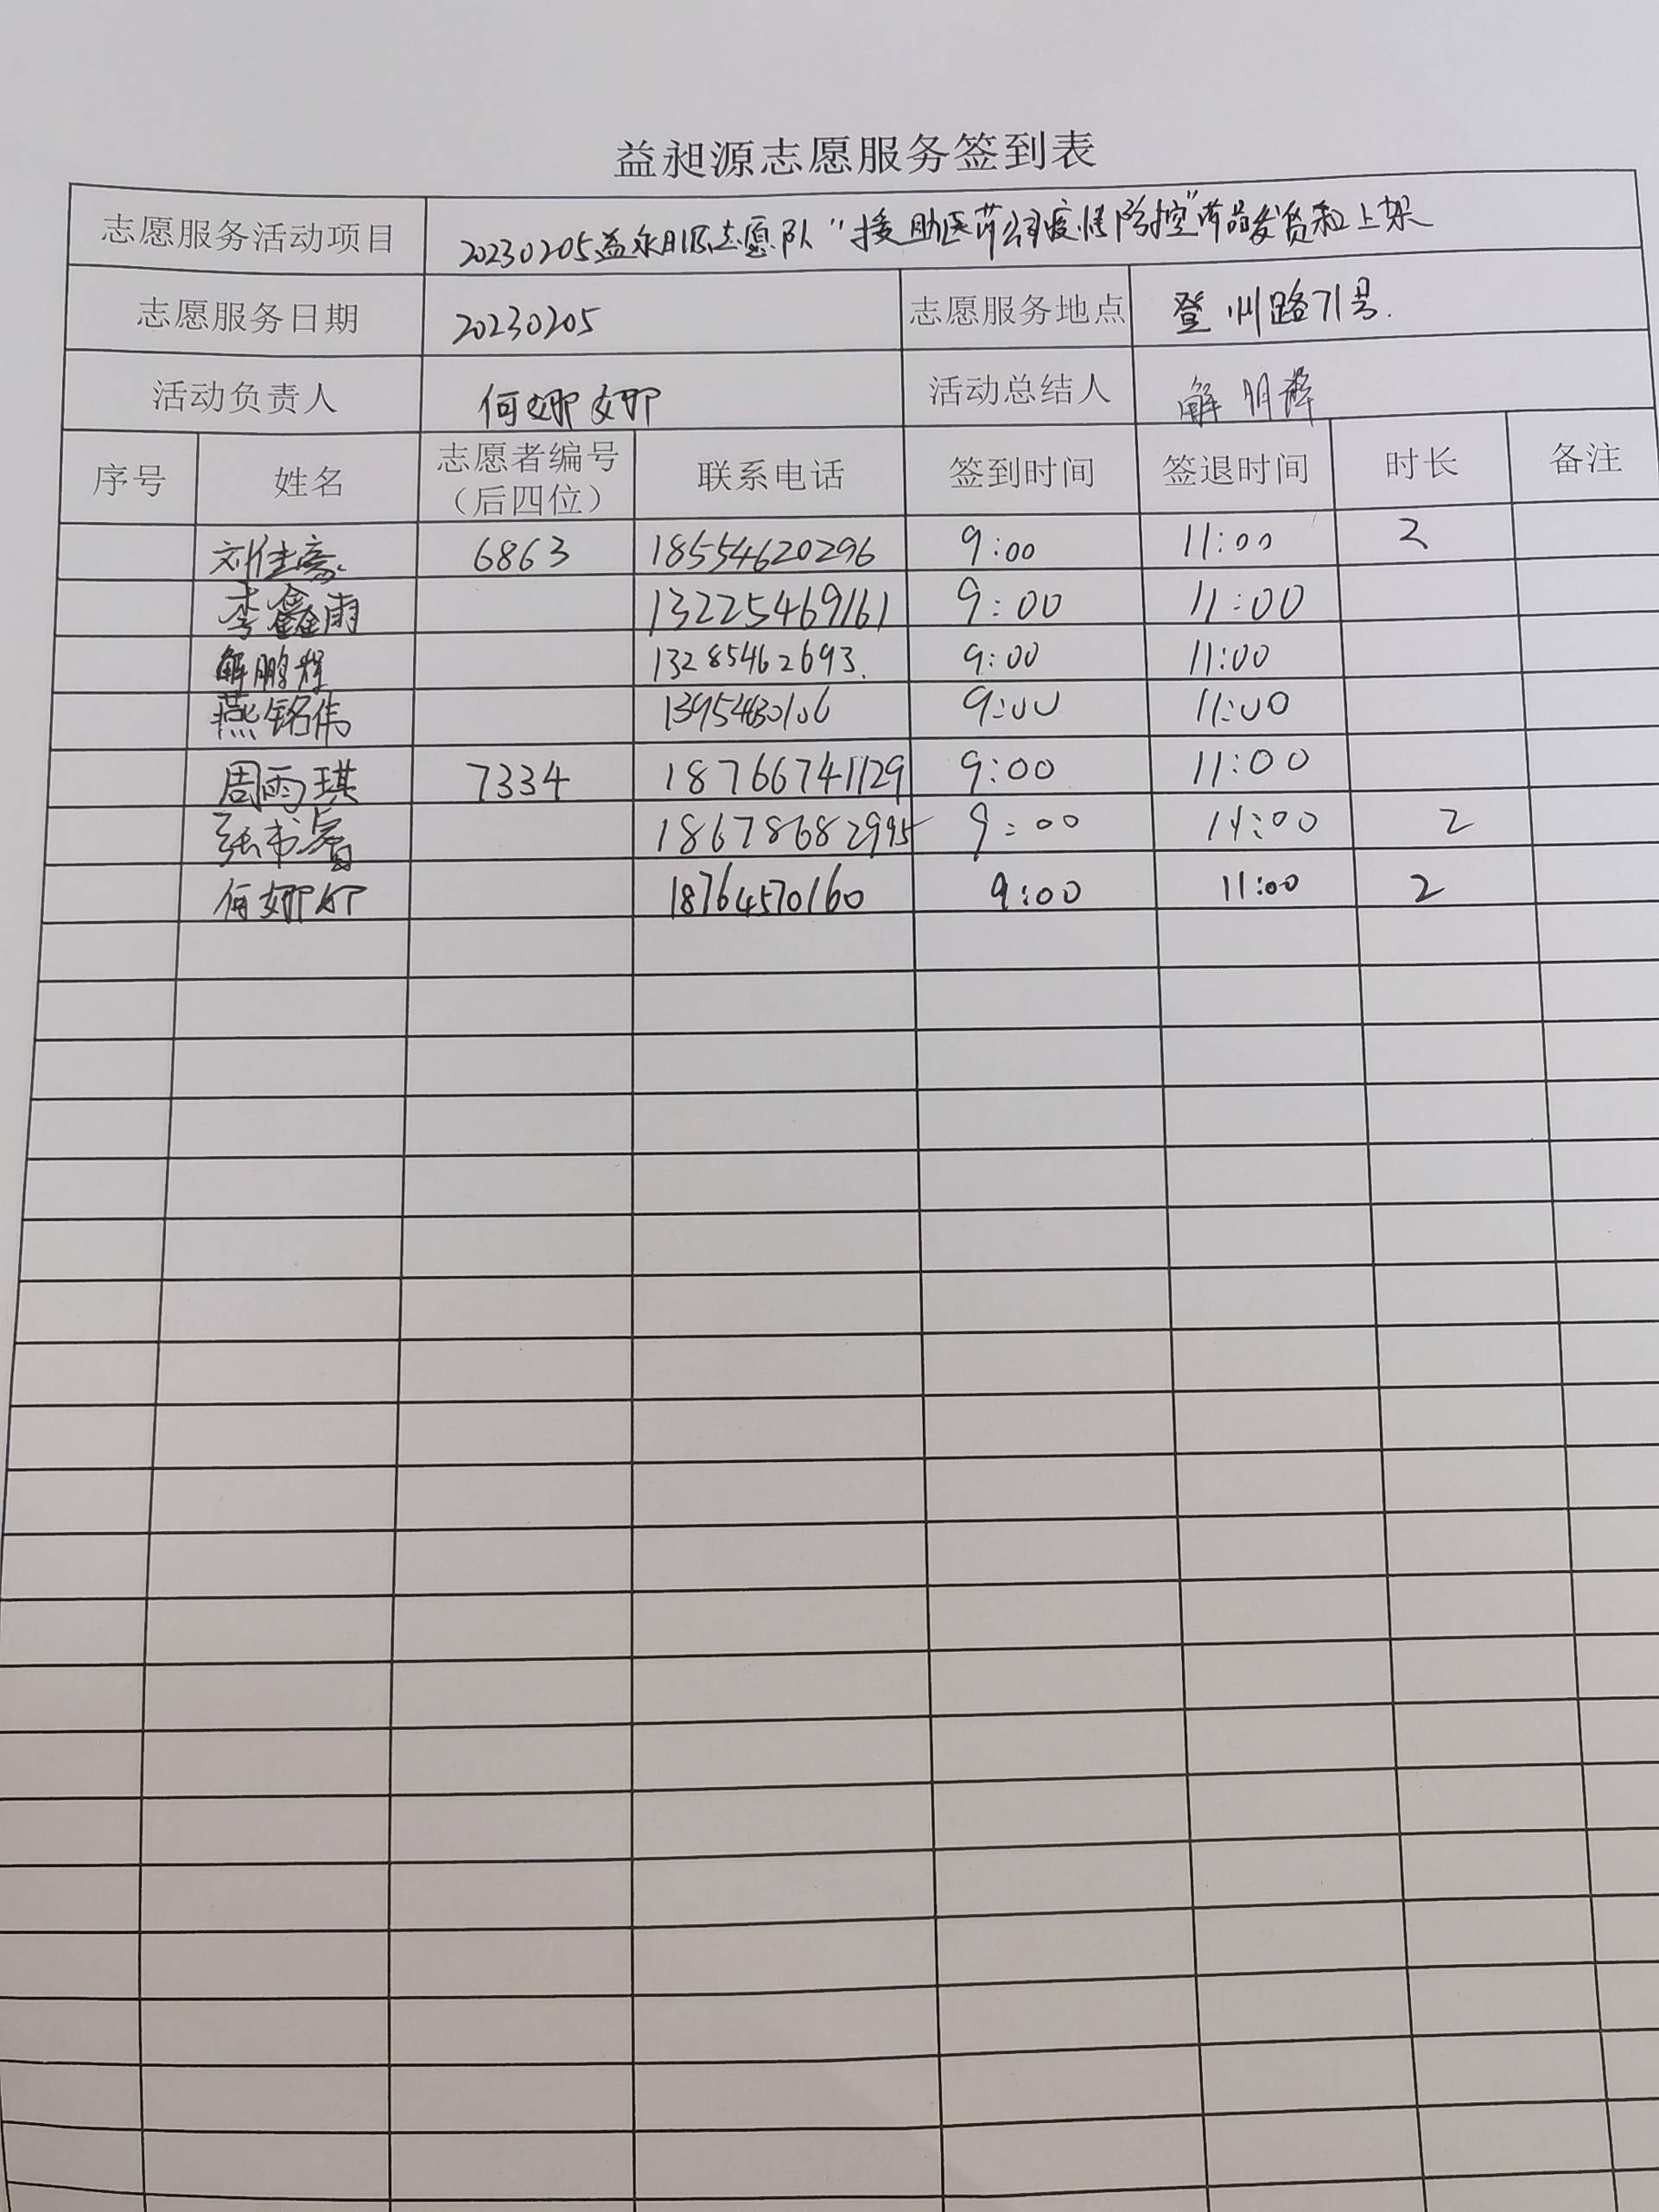 益昶源志愿服务签到表
志愿服务活动项目 20230205益永日源志愿队"援助医药公司疫情防控"药品发货和上架
志愿服务日期 20230205 志愿服务地点 登州路71号.
活动负责人 何娜娜 活动总结人 解明
序号 姓名 志愿者编号（后四位） 联系电话 签到时间 签退时间 时长 备注
刘佳豪 6863 18554620296 9:00 11:00 2
李鑫雨 13225469161 9:00 11:00
解鹏辉 13285462693. 9:00 11:00
燕铭伟 9:00 11:00
周雨琪 7334 18766741129 9:00 11:00
张书睿 18678682995 9:00 11:00 2
何娜娜 18764570160 9:00 11:00 2